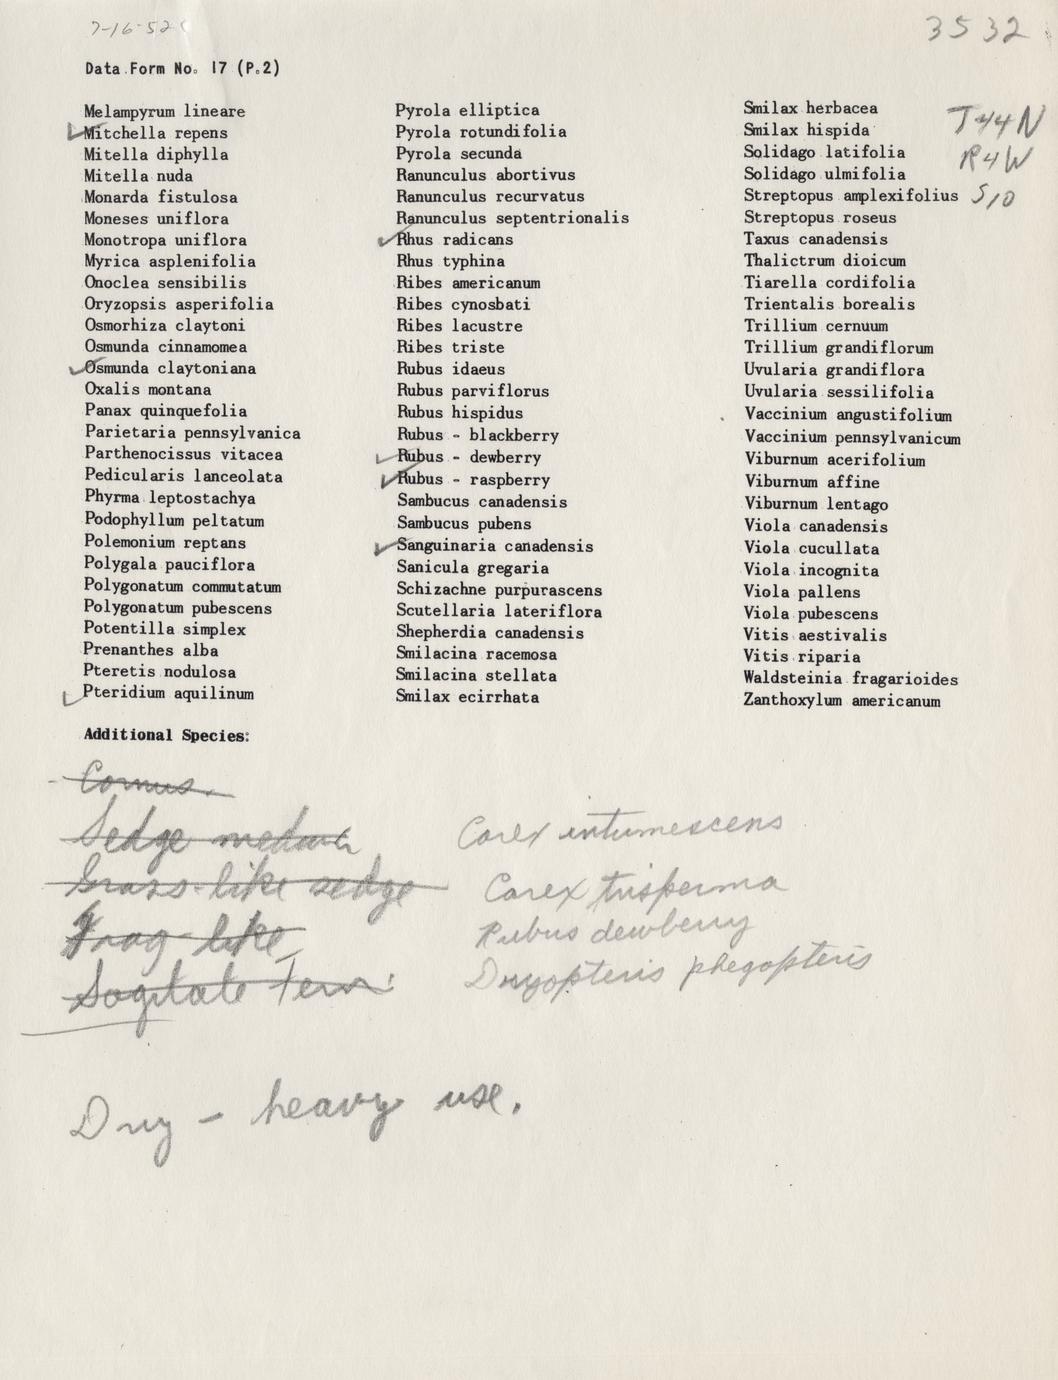 7-16-52
3532
Data Form No. 17 (P.2)
Melampyrum lineare
Mitchella repens
Mitella diphylla
Mitella nuda
Monarda fistulosa
Moneses uniflora
Monotropa uniflora
Myrica asplenifolia
Onoclea sensibilis
Oryzopsis asperifolia
Osmorhiza claytoni
Osmunda cinnamomea
Osmunda claytoniana
Oxalis montana
Panax quinquefolia
Parietaria pennsylvanica
Parthenocissus vitacea
Pedicularis lanceolata
Phyrma leptostachya
Podophyllum peltatum
Polemonium reptans
Polygala pauciflora
Polygonatum commutatum
Polygonatum pubescens
Potentilla simplex
Prenanthes alba
Pteretis nodulosa
Pteridium aquilinum
Pyrola elliptica
Pyrola rotundifolia
Pyrola secunda
Ranunculus abortivus
Ranunculus recurvatus
Ranunculus septentrionalis
Rhus radicans
Rhus typhina
Ribes americanum
Ribes cynosbati
Ribes lacustre
Ribes triste
Rubus idaeus
Rubus parviflorus
Rubus hispidus
Rubus - blackberry
Rubus - dewberry
Rubus - raspberry
Sambucus canadensis
Sambucus pubens
Sanguinaria canadensis
Sanicula gregaria
Schizachne purpurascens
Scutellaria lateriflora
Shepherdia canadensis
Smilacina racemosa
Smilacina stellata
Smilax ecirrhata
Smilax herbacea
Smilax hispida
Solidago latifolia
Solidago ulmifolia
Streptopus amplexifolius
Streptopus roseus
Taxus canadensis
Thalictrum dioicum
Tiarella cordifolia
Trientalis borealis
Trillium cernuum
Trillium grandiflorum
Uvularia grandiflora
Uvularia sessilifolia
Vaccinium angustifolium
Vaccinium pennsylvanicum
Viburnum acerifolium
Viburnum affine
Viburnum lentago
Viola canadensis
Viola cucullata
Viola incognita
Viola pallens
Viola pubescens
Vitis aestivalis
Vitis riparia
Waldsteinia fragarioides
Zanthoxylum americanum
T44N
R4W
S10
Additional Species:
Cornus.
Sedge
Carex intumescens
Grass-like sedge
Carex trisperma
Frag-like
Rubus dewberry
Sagitate Fern
Dryopteris phegopteris
Dry - heavy use.